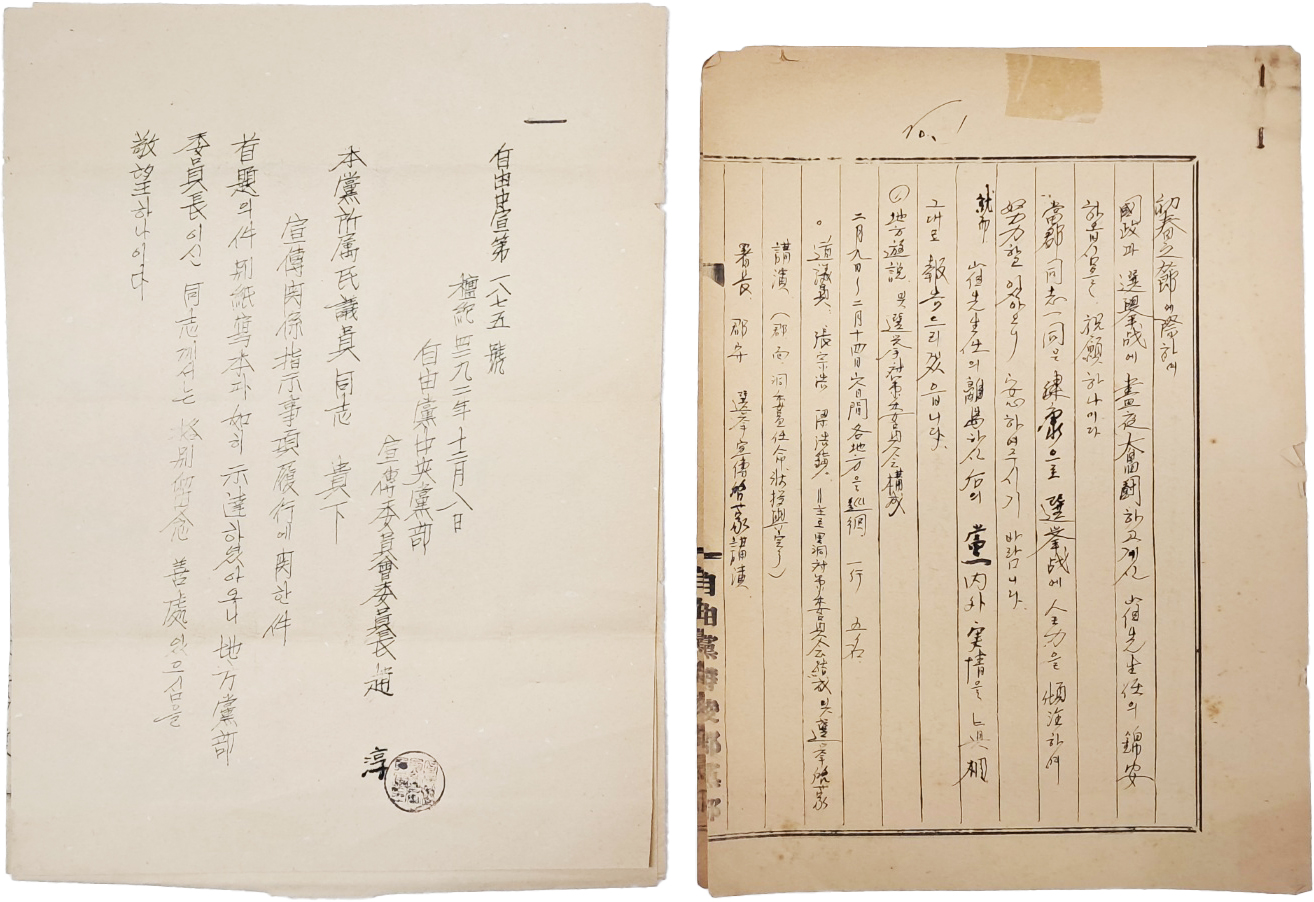 自由中宣第一八七五號
檀紀四二九二年十二月八日
自由黨中央黨部
宣傳委員會委員長 趙淳
本黨所属民議員同志 貴下
宣傳関係指示事項履行에関한件
首題의件別紙寫本과如히示達하였아오니 地方黨部
委員長이신 同志께서는 別留念 善處있으심을
敬望하나이다
No. 1
初春之節에際하여
國政과 選擧戰에 晝夜奮鬪하고계신 崔先生任의 錦安
하심을 祝願하나이다
當郡 同志一同은 健康으로 選擧战에 全力을 傾注하여
努力할 있아오니 安心하여주시기 바랍니다.
就而 崔先生任의 離場하신 后의 黨内外 実情을 眞相
그대로 報告드리겠읍니다.
(1) 地方遊説 及 選挙対策委員会構成
二月九日~二月十四日六日間各地方을巡網 一行 五名
道議員 張宗浩 梁 =主로里洞対策委員会結成 及選挙啓蒙
講演 (郡面洞委員任命状授與完了)
署長 郡守 選挙宣傳啓蒙講演
自由黨 郡